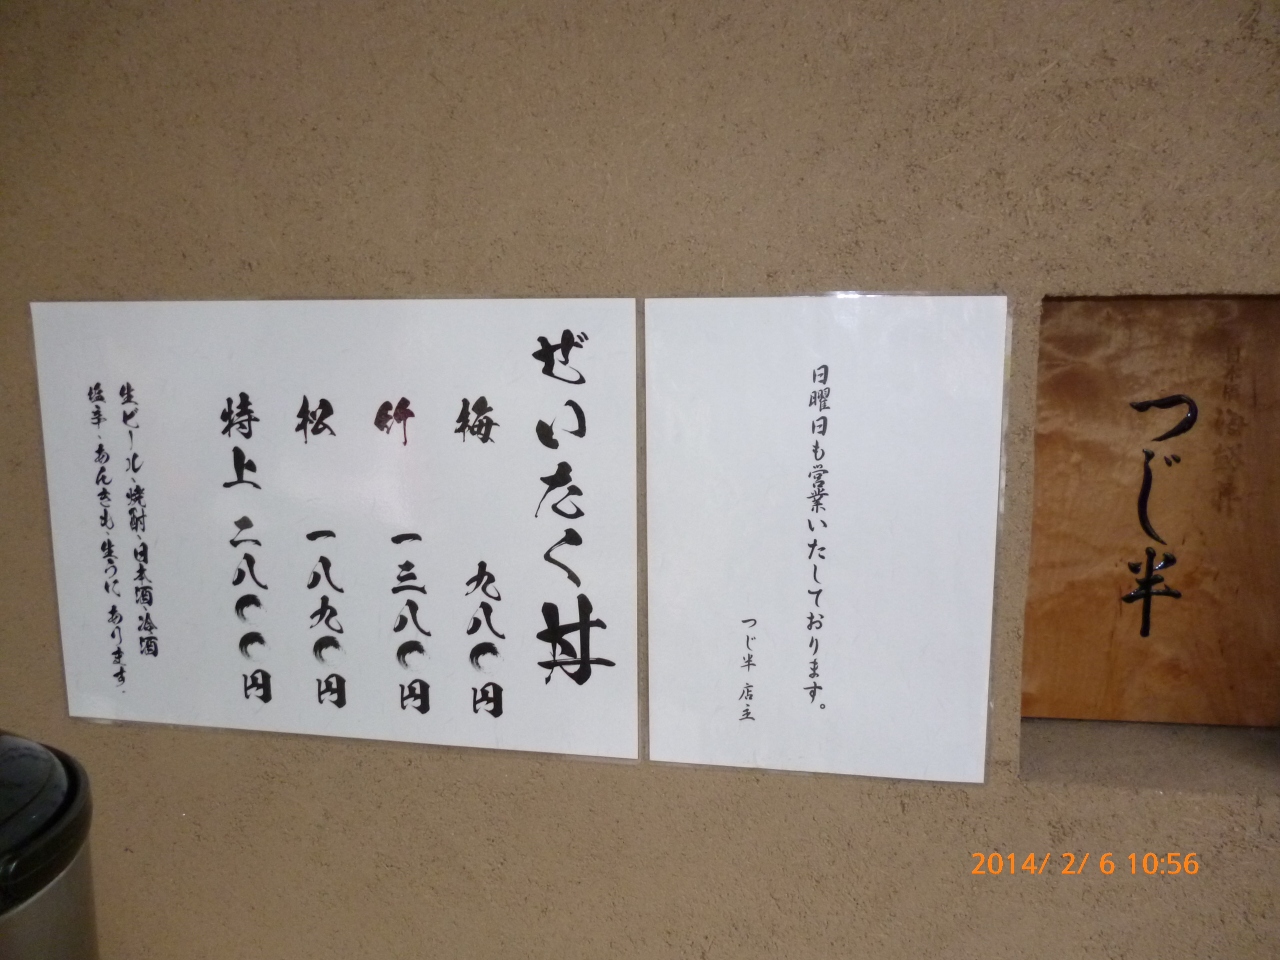 つじ半
日曜日も営業いたしております。
つじ半 店主
ぜいたく丼
梅 九八〇円
竹 一三八〇円
松 一八九〇円
特上 二八〇〇円
生ビール、焼酎、日本酒、冷酒
塩辛、あんきも、生うに あります。
2014/ 2/ 6 10:56